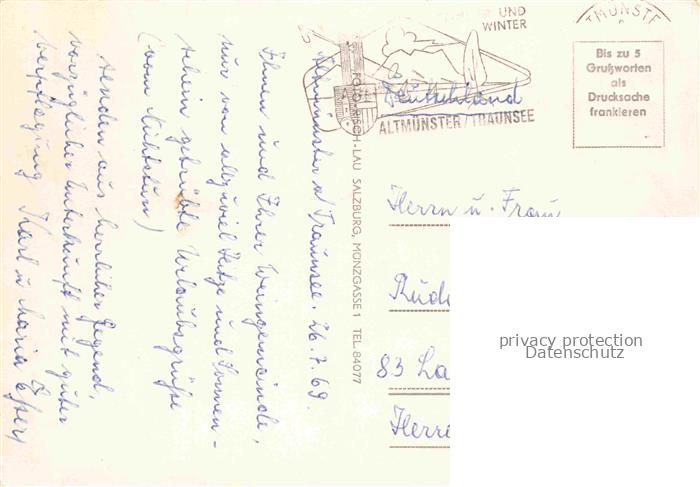 Altmünster a/Traunsee. 26.7.69.
Ihnen und Ihrer Weingemeinde,
nur von allzuviel Hitze und Sonnen-
schein getrübte Urlaubsgrüße
(vom Nichtstun)
senden aus herrlicher Gegend,
vorzüglicher Unterkunft mit guter
Verpflegung Karl u. Maria
FOTO RISCH-LAU SALZBURG, MÜNZGASSE 1 TEL. 84077
UND
WINTER
ALTMÜNSTER/TRAUNSEE
MÜNSTE
Bis zu 5
Grußworten
als
Drucksache
frankieren
Deutschland
Herrn u. Frau
Rud
83 La
Herre
privacy protection
Datenschutz